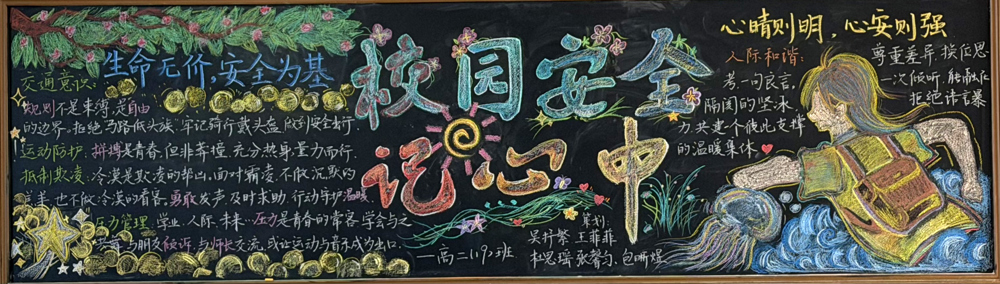 生命无价,安全为基
交通意识:
规则不是束缚,是自由
的边界。拒绝马路低头族,牢记骑行戴头盔,做到安全出行.
运动防护:拼搏是青春,但非莽撞.充分热身,量力而行.
抵制欺凌:冷漠是欺凌的帮凶.面对霸凌,不做沉默的
羔羊,也不做冷漠的看客,勇敢发声,及时求助,行动守护温暖
压力管理:学业、人际、未来…压力是青春的常客.学会与之
共舞,与朋友倾诉,与师长交流,或让运动与音乐成为出口.
校园安全
记心中
——高二(19)班
筹划:
吴抒繁 王菲菲
杜思瑶 张馨匀 包晰煜
心晴则明,心安则强
人际和谐:
尊重差异,换位思
考.一句良言,
一次倾听,能融化
隔阂的坚冰.
拒绝谣言暴
力,共建个彼此支撑
的温暖集体.